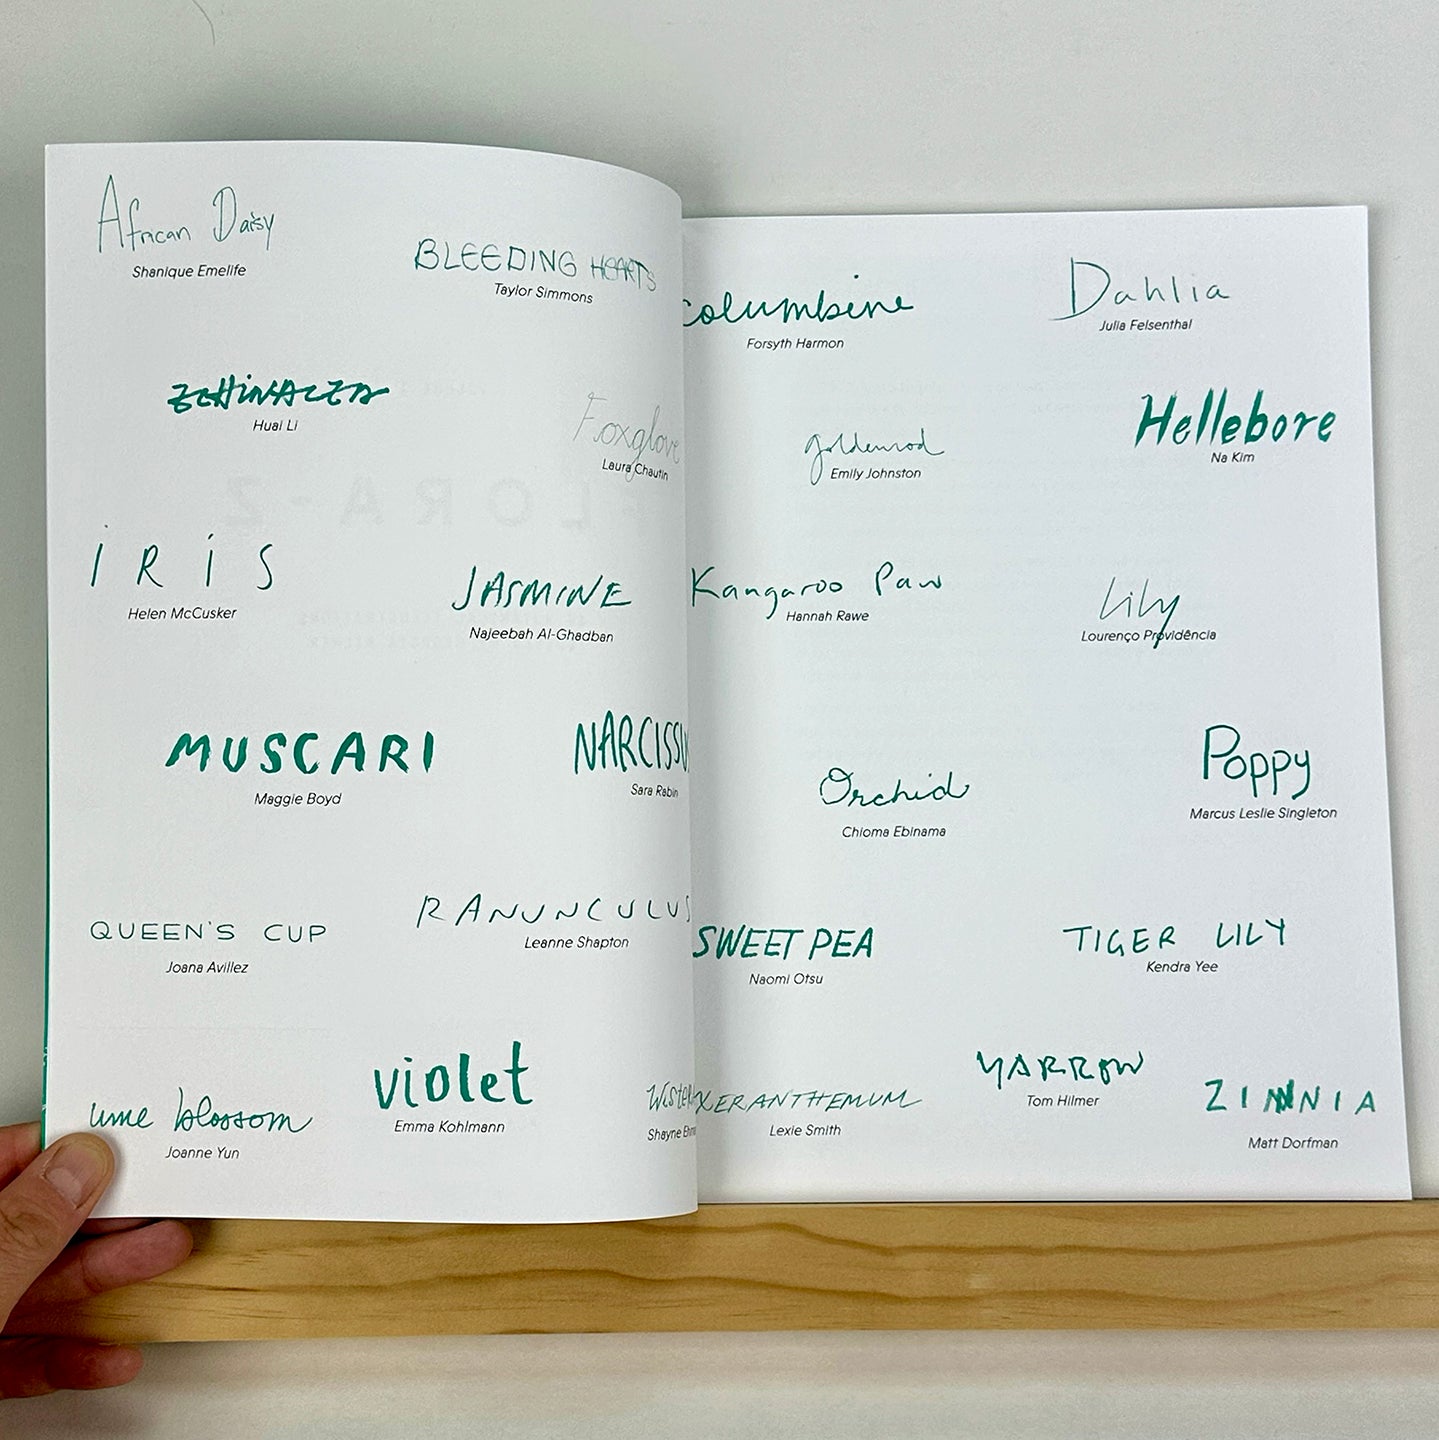 African Daisy
Shanique Emelife
BLEEDING HEARTS
Taylor Simmons
columbine
Forsyth Harmon
Dahlia
Julia Felsenthal
ECHINACEA
Huai Li
Foxglove
Laura Chautin
goldenrod
Emily Johnston
Hellebore
Na Kim
IRIS
Helen McCusker
JASMINE
Najeebah Al-Ghadban
Kangaroo Paw
Hannah Rawe
Lily
Lourenço Providência
MUSCARI
Maggie Boyd
NARCISSU
Sara Rabin
Orchid
Chioma Ebinama
Poppy
Marcus Leslie Singleton
QUEEN'S CUP
Joana Avillez
RANUNCULUS
Leanne Shapton
SWEET PEA
Naomi Otsu
TIGER LILY
Kendra Yee
ume blossom
Joanne Yun
violet
Emma Kohlmann
Wister
Shayne
XERANTHEMUM
Lexie Smith
YARROW
Tom Hilmer
ZINNIA
Matt Dorfman